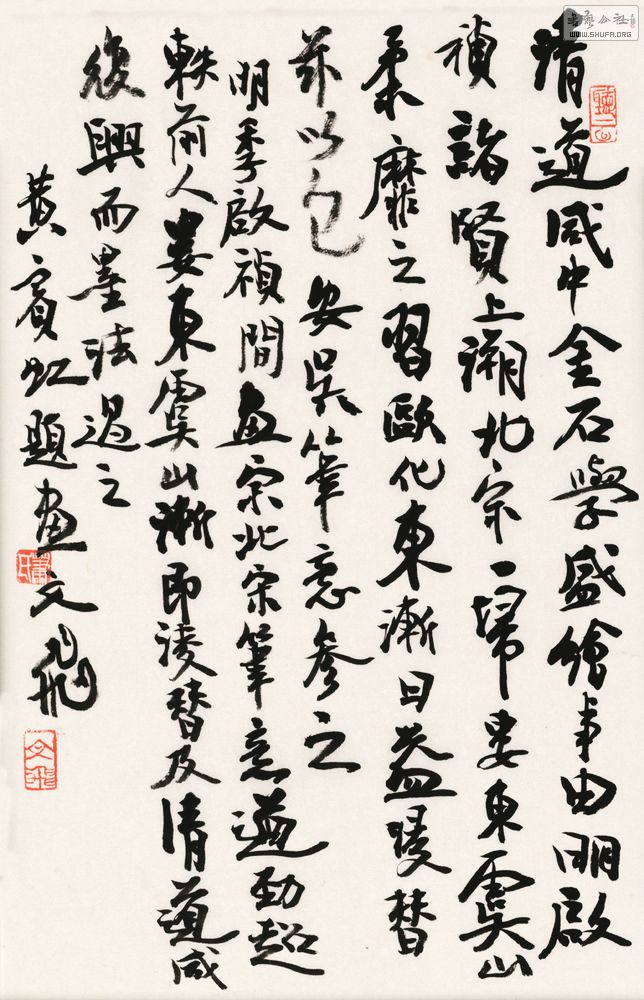 清道咸中金石學盛繪事由明啟
禎諸賢上溯北宗一掃婁東虞山
柔靡之習歐化東漸日益陵替
茲以包安吳筆意參之
明季啟禎間畫宗北宋筆意遒勁超
軼前人婁東虞山漸即淩替及清道咸
復興而墨法過之
黃賓虹題畫文飛
WWW.SHUFA.ORG